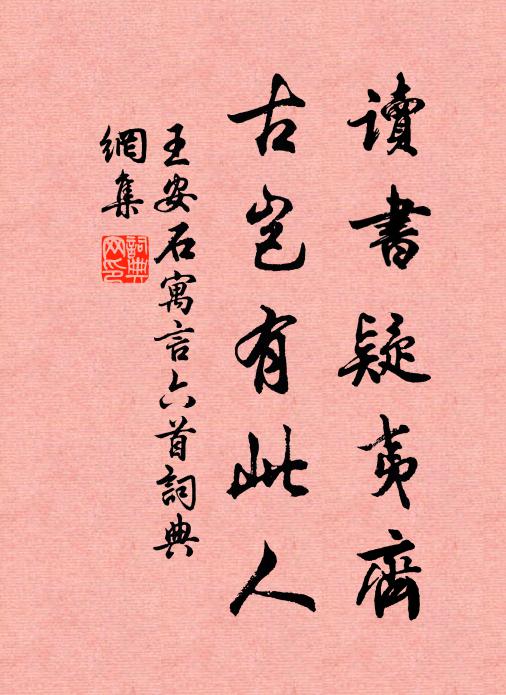 讀書疑夷齊
古豈有此人
王安石寓言六首詞典
網集
詞典网印